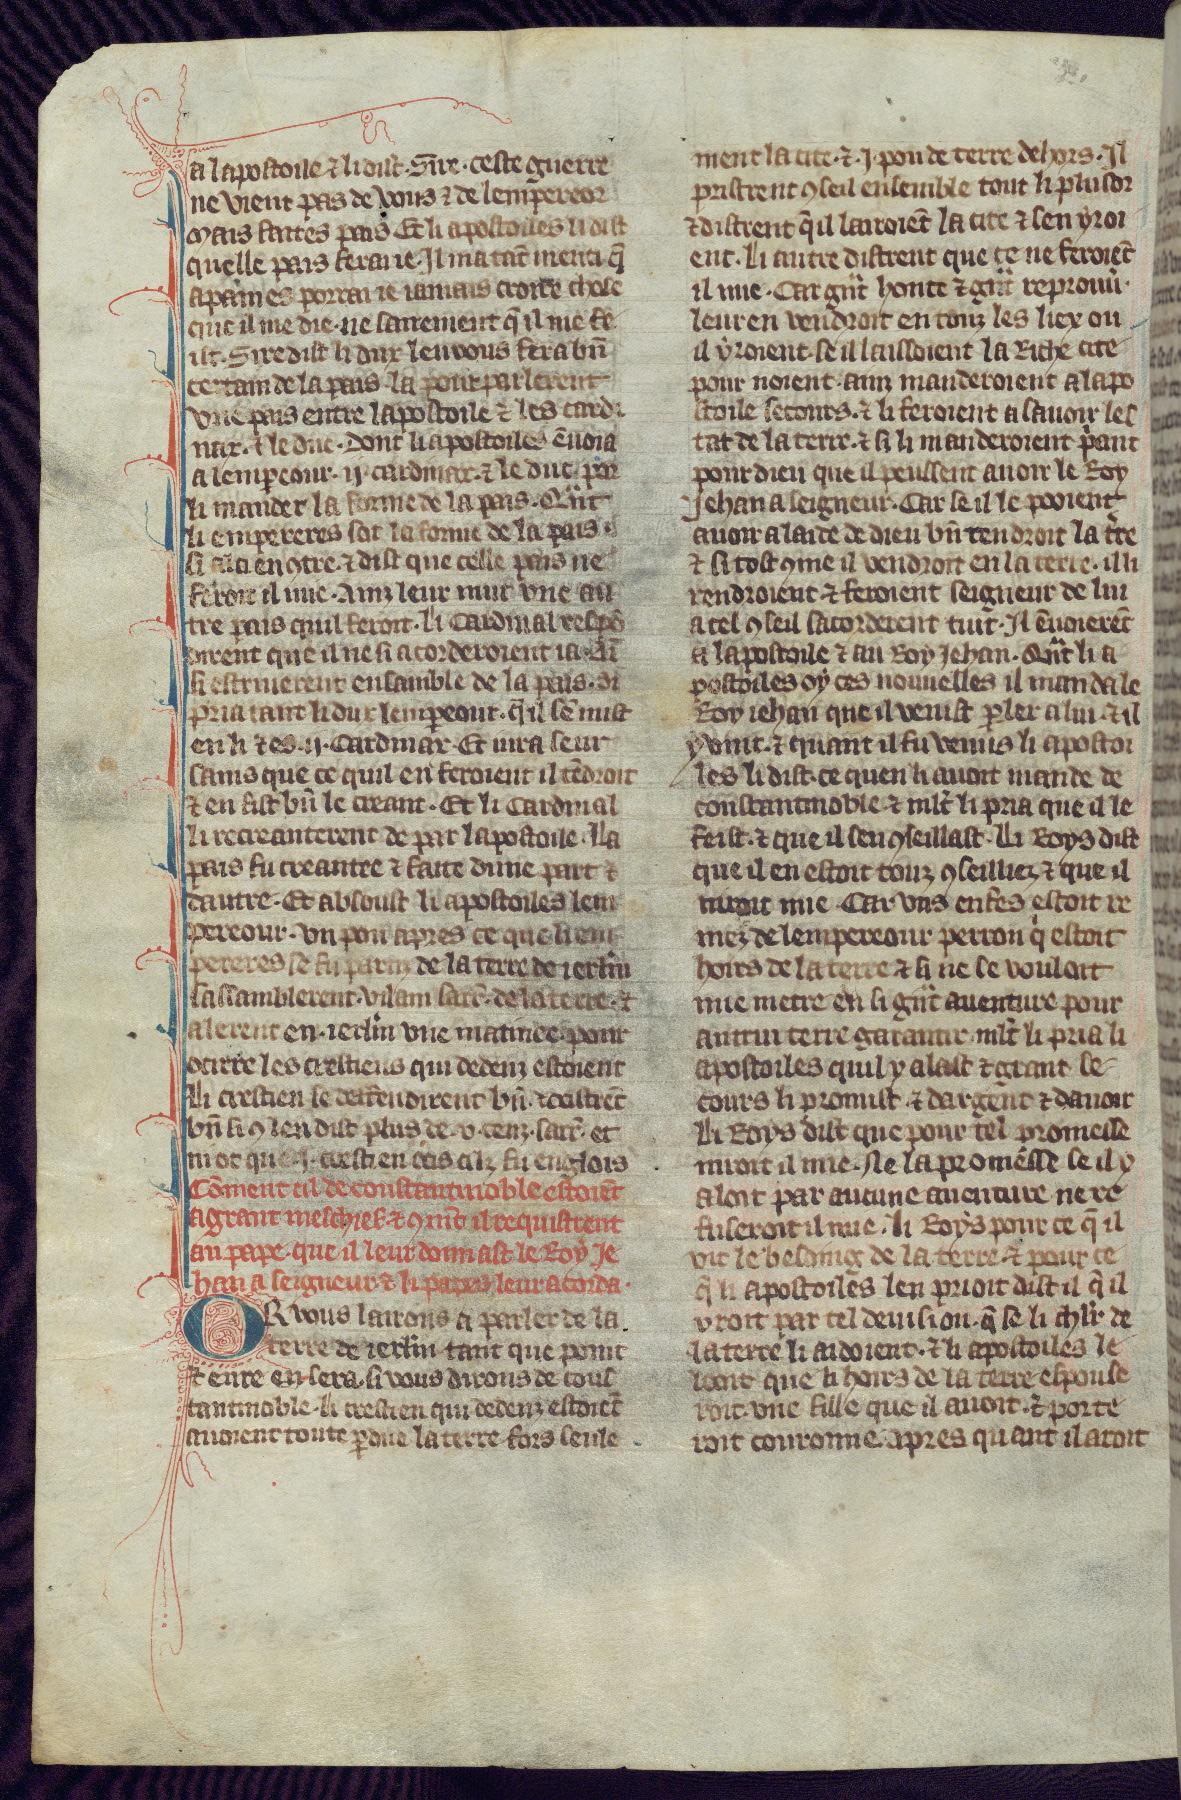 a lapostoile ⁊ li dist. Sire. ceste guerre
ne vient pas de vous ⁊ de lemp̄ereor
Mais faites pais Et li apostoiles li dist
quelle pais ferai ie. Il ma tāt menti q̄
apaines porrai ie iamais croire chose
que il me die. ne sairement q̄ il me fe
ist. Sire dist li dux len vous fera bn̄
certain de la pais. la pourparlerent
vne pais entre lapostoile ⁊ les cardi
nax. ⁊ le duc. Dont li apostoiles ēuoia
a lemp̄eour. ij. cardinax. ⁊ le duc por
li mander la forme de la pais. Q̄nt
li empereres sot la forme de la pais.
si ala en ꝯtre. ⁊ dist que celle pais ne
feroit il mie. Ainz leur mut vne au
tre pais quil feroit. li Cardinal respō
dirent que il ne si acorderoient ia. Q̄nt
si estriuerent ensamble de la pais. Si
pria tant li dux lemp̄eour. q̄ il se mist
en li ⁊ es. ij. Cardinax. Et iura seur
sains que ce quil en feroient il tēdroit
⁊ en fist bn̄ le creant. Et li Cardinal
li recreanterent de par lapostoile. La
pais fu creantee ⁊ faite dune part ⁊
dautre. Et absoust li apostoiles lem
pereour. Vn pou apres ce que li em
pereres se fu partiz de la terre de ierlm̄
sassamblerent. vilain sarr̄. de la terre. ⁊
alerent en. ierlm̄ vne matinee. pour
ocirre les crestiens qui dedenz estoient
Li crestien se deffendirent bn̄. ⁊ ocistrēt
bn̄ si ꝯ len dist plus de. v. cenz. sarr̄. et
ni ot que .j. crestien ocis cilz fu englois
Cōment cil de constantinoble estoiēt
a grant meschief. ⁊ ꝯmēt il requistrent
au pape. que il leur donnast le Roy Je
han a seigneur. ⁊ li papes leur acorda.
OR vous lairons a parler de la
terre de ierlm̄ tant que poinz
⁊ eure en sera. si vous dirons de cons
tantinoble. li crestien qui dedenz estoiēt
auoient toute p̱due la terre fors seule
ment la cite. ⁊. j. pou de terre dehors. Il
pristrent ꝯseil ensemble tout li plusor
⁊ distrent q̄ il lairoiēt la cite ⁊ sen yroi
ent. Li autre distrent que ce ne feroiēt
il mie. Car gn̄t honte ⁊ gn̄t reprouū.
leur en vendroit en touz les liex ou
il yroient. se il laissoient la Riche cite
pour noient. ainz manderoient a lapo
stoile secours. ⁊ li feroient a sauoir les
tat de la terre. ⁊ si li manderoient p̄ant
pour dieu que il peussent auoir le Roy
Jehan a seigneur. Car se il le pooient
auoir a laide de dieu bn̄ tendroit la tr̄e
⁊ si tost ꝯme il vendroit en la terre. il li
rendroient ⁊ feroient seigneur de lui
a tel ꝯseil sacorderent tuit. Il ēuoierēt
a lapostoile ⁊ au Roy Jehan. Q̄nt li a
postoiles oy ces nouuelles il manda le
Roy iehan que il venist p̱ler a lui ⁊ il
y vint. ⁊ quant il fu venus li apostoi
les li dist. ce quen li auoit mande de
constantinoble ⁊ ml̄t li pria que il le
feist. ⁊ que il sen ꝯseillast. Li Roys dist
que il en estoit touz ꝯseilliez ⁊ que il
niroit mie Car vns enfes estoit re
mez de lempereour perron q̇ estoit
hoirs de la terre ⁊ si ne se vouloit
mie metre en si gn̄t auenture pour
autrui terre garantir. ml̄t li pria li
apostoiles quil y alast ⁊ grant se
cours li promist ⁊ dargent ⁊ dauoir
Li Roys dist que pour tel promesse
niroit il mie. Ne la promēsse se il y
aloit par aucune auenture ne re
fuseroit il mie. li Roys pour ce q̄ il
vit le besoing de la terre. ⁊ pour ce
q̄ li apostoiles len prioit dist il q̄ il
yroit par tel deuision. q̄ se li chl̄r de
la terre li aidoient. ⁊ li apostoiles le
looit que li hoirs de la terre espouse
roit. vne fille que il auoit. ⁊ porte
roit couronne. apres quant il aroit